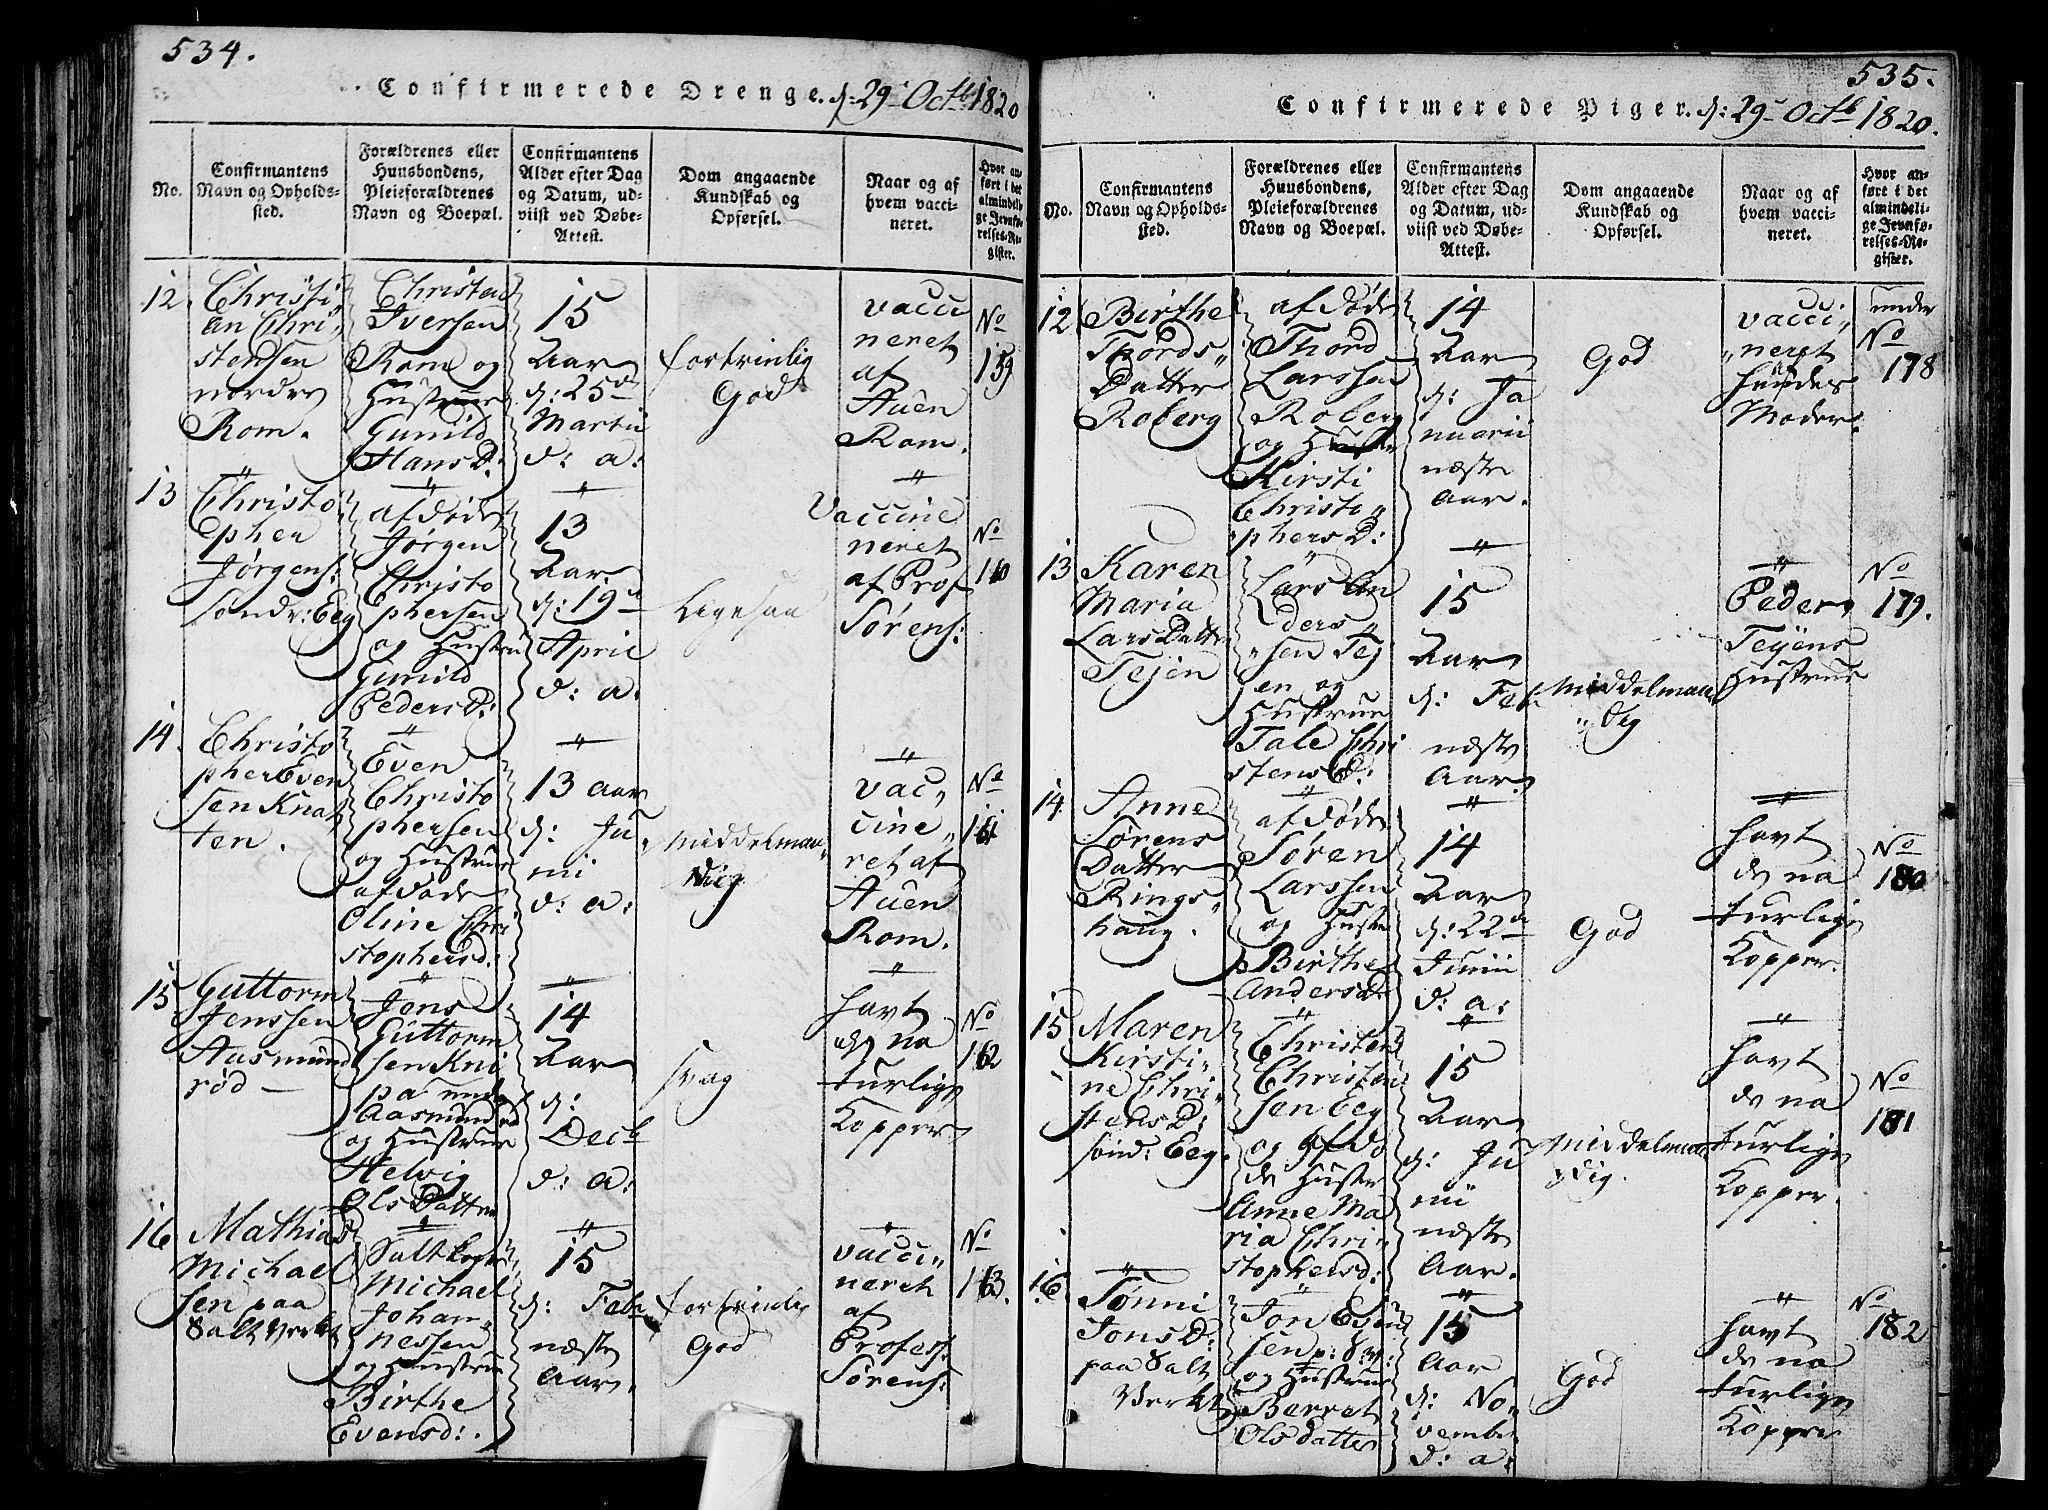 534.
Confirmerede Drenge. d: 29 Octb 1820
No.
Confirmantens
Navn og Opholds-
sted.
Forældrenes eller
Huusbondens,
Pleieforældrenes
Navn og Boepæl.
Confirmantens
Alder efter Dag
og Datum, ud-
viist ved Døbe-
Attest.
Dom angaaende
Kundskab og
Opførsel.
Naar og af
hvem vacci-
neret.
Hvor an-
ført i det
almindeli-
ge Jevnfø-
relses-Re-
gister.
12.
Christi
an Chri
stensen
nordre
Rom.
Christen
Iversen
Rom og
Hustrue
Gunild
Hans D:
15
Aar
d: 25de
Martii
d: a:
fortrinlig
God
vacci
neret
af
Auen
Rom.
No
159
13
Christo
pher
Jørgens:
søndr: Eeg
afdøde
Jørgen
Christo
phersen
og Hustru
Gunild
Peders D:
13
Aar
d: 19de
April
d: a:
Ligesaa
Vaccine
neret
af Prof
Sørens:
No
160
14.
Christo
pher Even
sen Knat
ten.
Even
Christo
phersen
og Hustrue
afdøde
Oline Chri
stophersd:
13 aar
d: Ju
nii
d: a:
middelmaa
dig
vac„
cine„
ret af
Auen
Rom.
No
161
15
Guttorm
Jenssen
Aasmund
rød —
Jens
Guttorm
sen Kni
pa
Aasmundrød
og Hustrue
Helvig
Ols Datter
14
Aar
d:
Decb
d: a:
svag
havt
de na
turlige
Kopper
No
162
16
Mathias
Michael
sen paa
Salt Verket
Michael
Johan„
nessen
og Hustrue
Birthe
Evensd:.
15
d: Febr
næste
Aar.
fortrinlig
God
vacci„
neret
af
Profess:
Sørens:
No
163.
535.
Confirmerede Piger. d: 29 Octb 1820.
No.
Confirmantens
Navn og Opholds-
sted.
Forældrenes eller
Huusbondens,
Pleieforældrenes
Navn og Boepæl.
Confirmantens
Alder efter Dag
og Datum, ud-
viist ved Døbe-
Attest.
Dom angaaende
Kundskab og
Opførsel.
Naar og af
hvem vacci-
neret.
Hvor an-
ført i det
almindeli-
ge Jevnfø-
relses-Re-
gister.
12
Birthe
Thords„
Datter
Roberg
afdøde
Thord
Larssen
Roberg
og Hustru
Kirsti
Christo„
phers D:
14
Aar
d: Ja
nuarii
næste
Aar.
God
vacci„
„neret
hendes
Moder.
under
No
178
13
Karen
Maria
Lars Datter
Tejen
Lars An
ders„
„sen Tej
en og
Hustrue
Tale Chri
stens D:
15
Aar
d: Feb
næste
Aar.
middelmaa
„dig
Peder
Tejens
Hustrue
No
179.
14.
Anne
Sørens
Datter
Rings„
haug.
afdøde
Søren
Larssen
og Hustru
Birthe
Anders D
14
Aar
d: 22de
Junii
d: a:
God
havt
de na
turlige
Kopper.
No
180
15
Maren
Kirsti„
ne Chri„
stens D:
sønd: Eeg.
Christen
Christen
sen Eeg
og afdø
de Hustr
Anne Ma
ria Chri„
stophersd:
15
Aar
d: Ju
nii
næste
Aar.
middelmaa
„dig.
havt
de na
turlige
Kopper.
No
181
16.
Tønni
Jons D:
paa Salt
Verket
Jon
sen p: S: V:
og Hustrue
Berret
Olsdatter
15
Aar
d: No„
vember
d: a:
God
havt
de na
turlige
Kopper
No
182